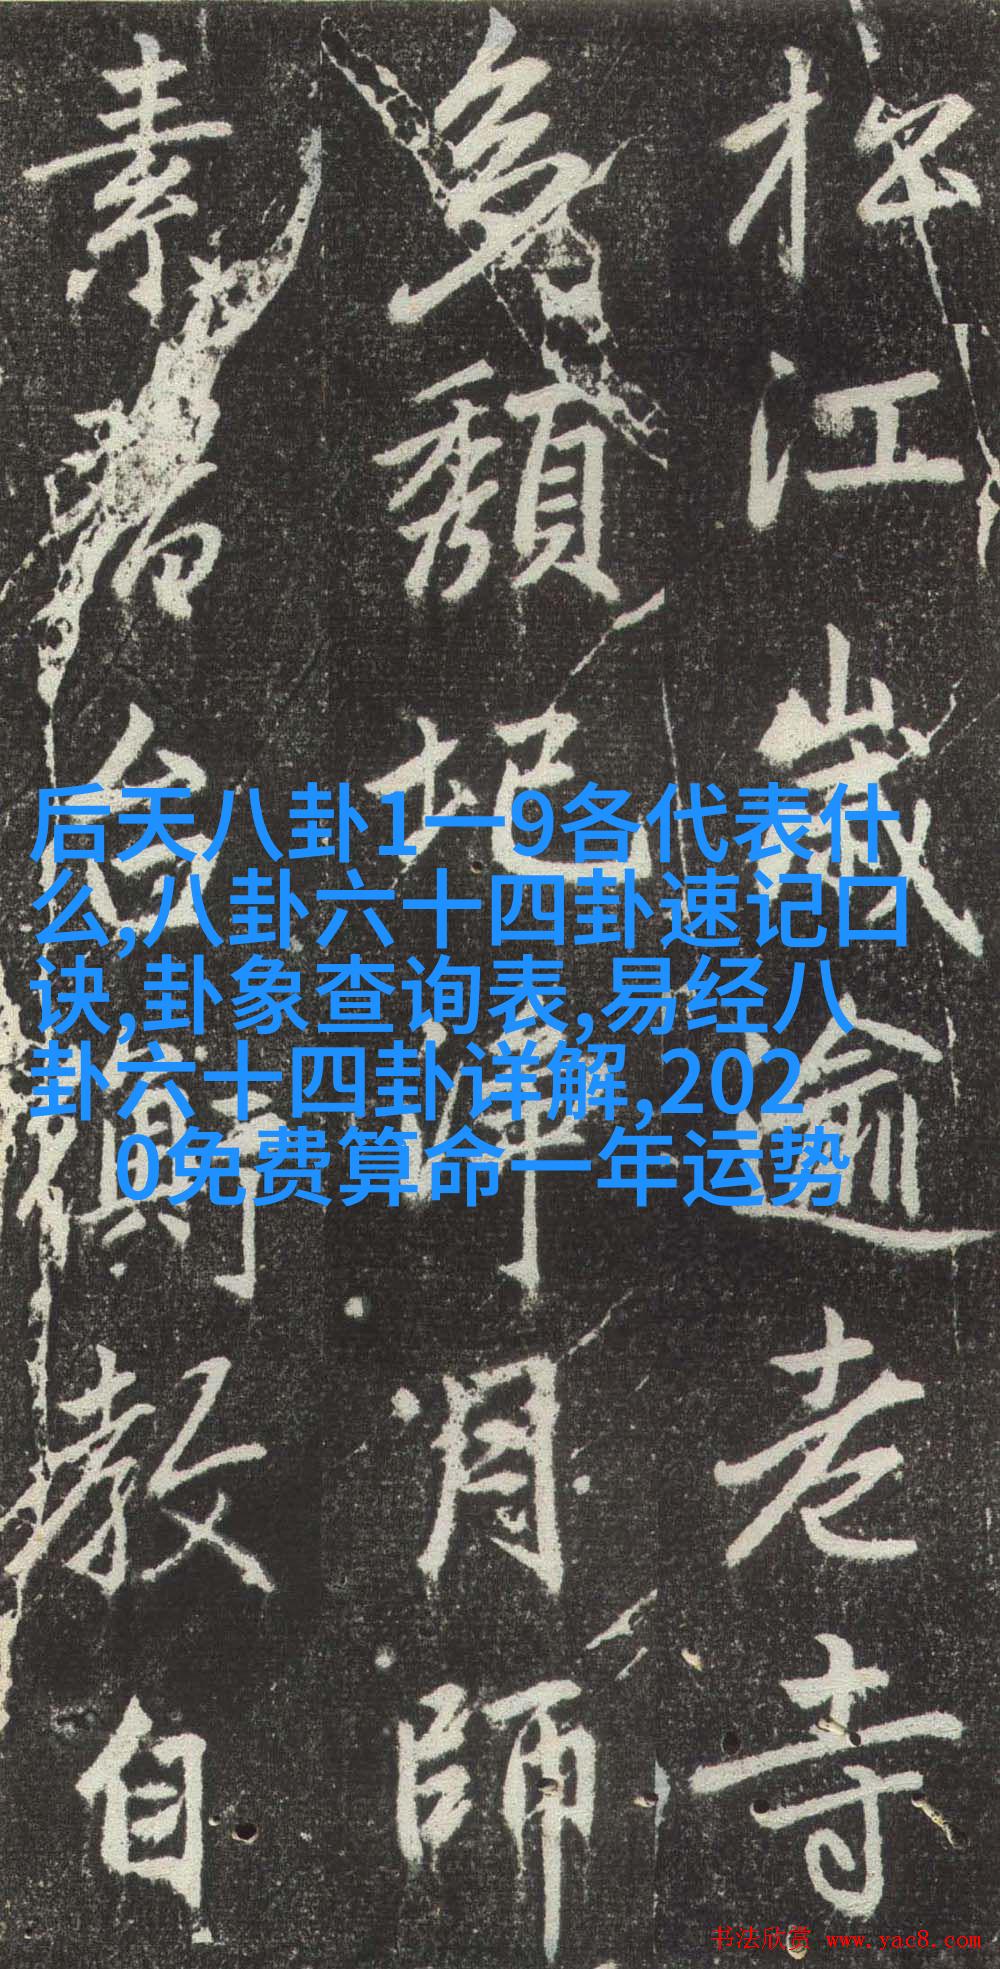 后天八卦1一9各代表什
么,八卦六十四卦速记口
诀,卦象查询表,易经八
卦六十四卦详解,202
0免费算命一年运势
江歲逾老寺
頹圮月師
素教自
书法欣赏 www.yac8.com